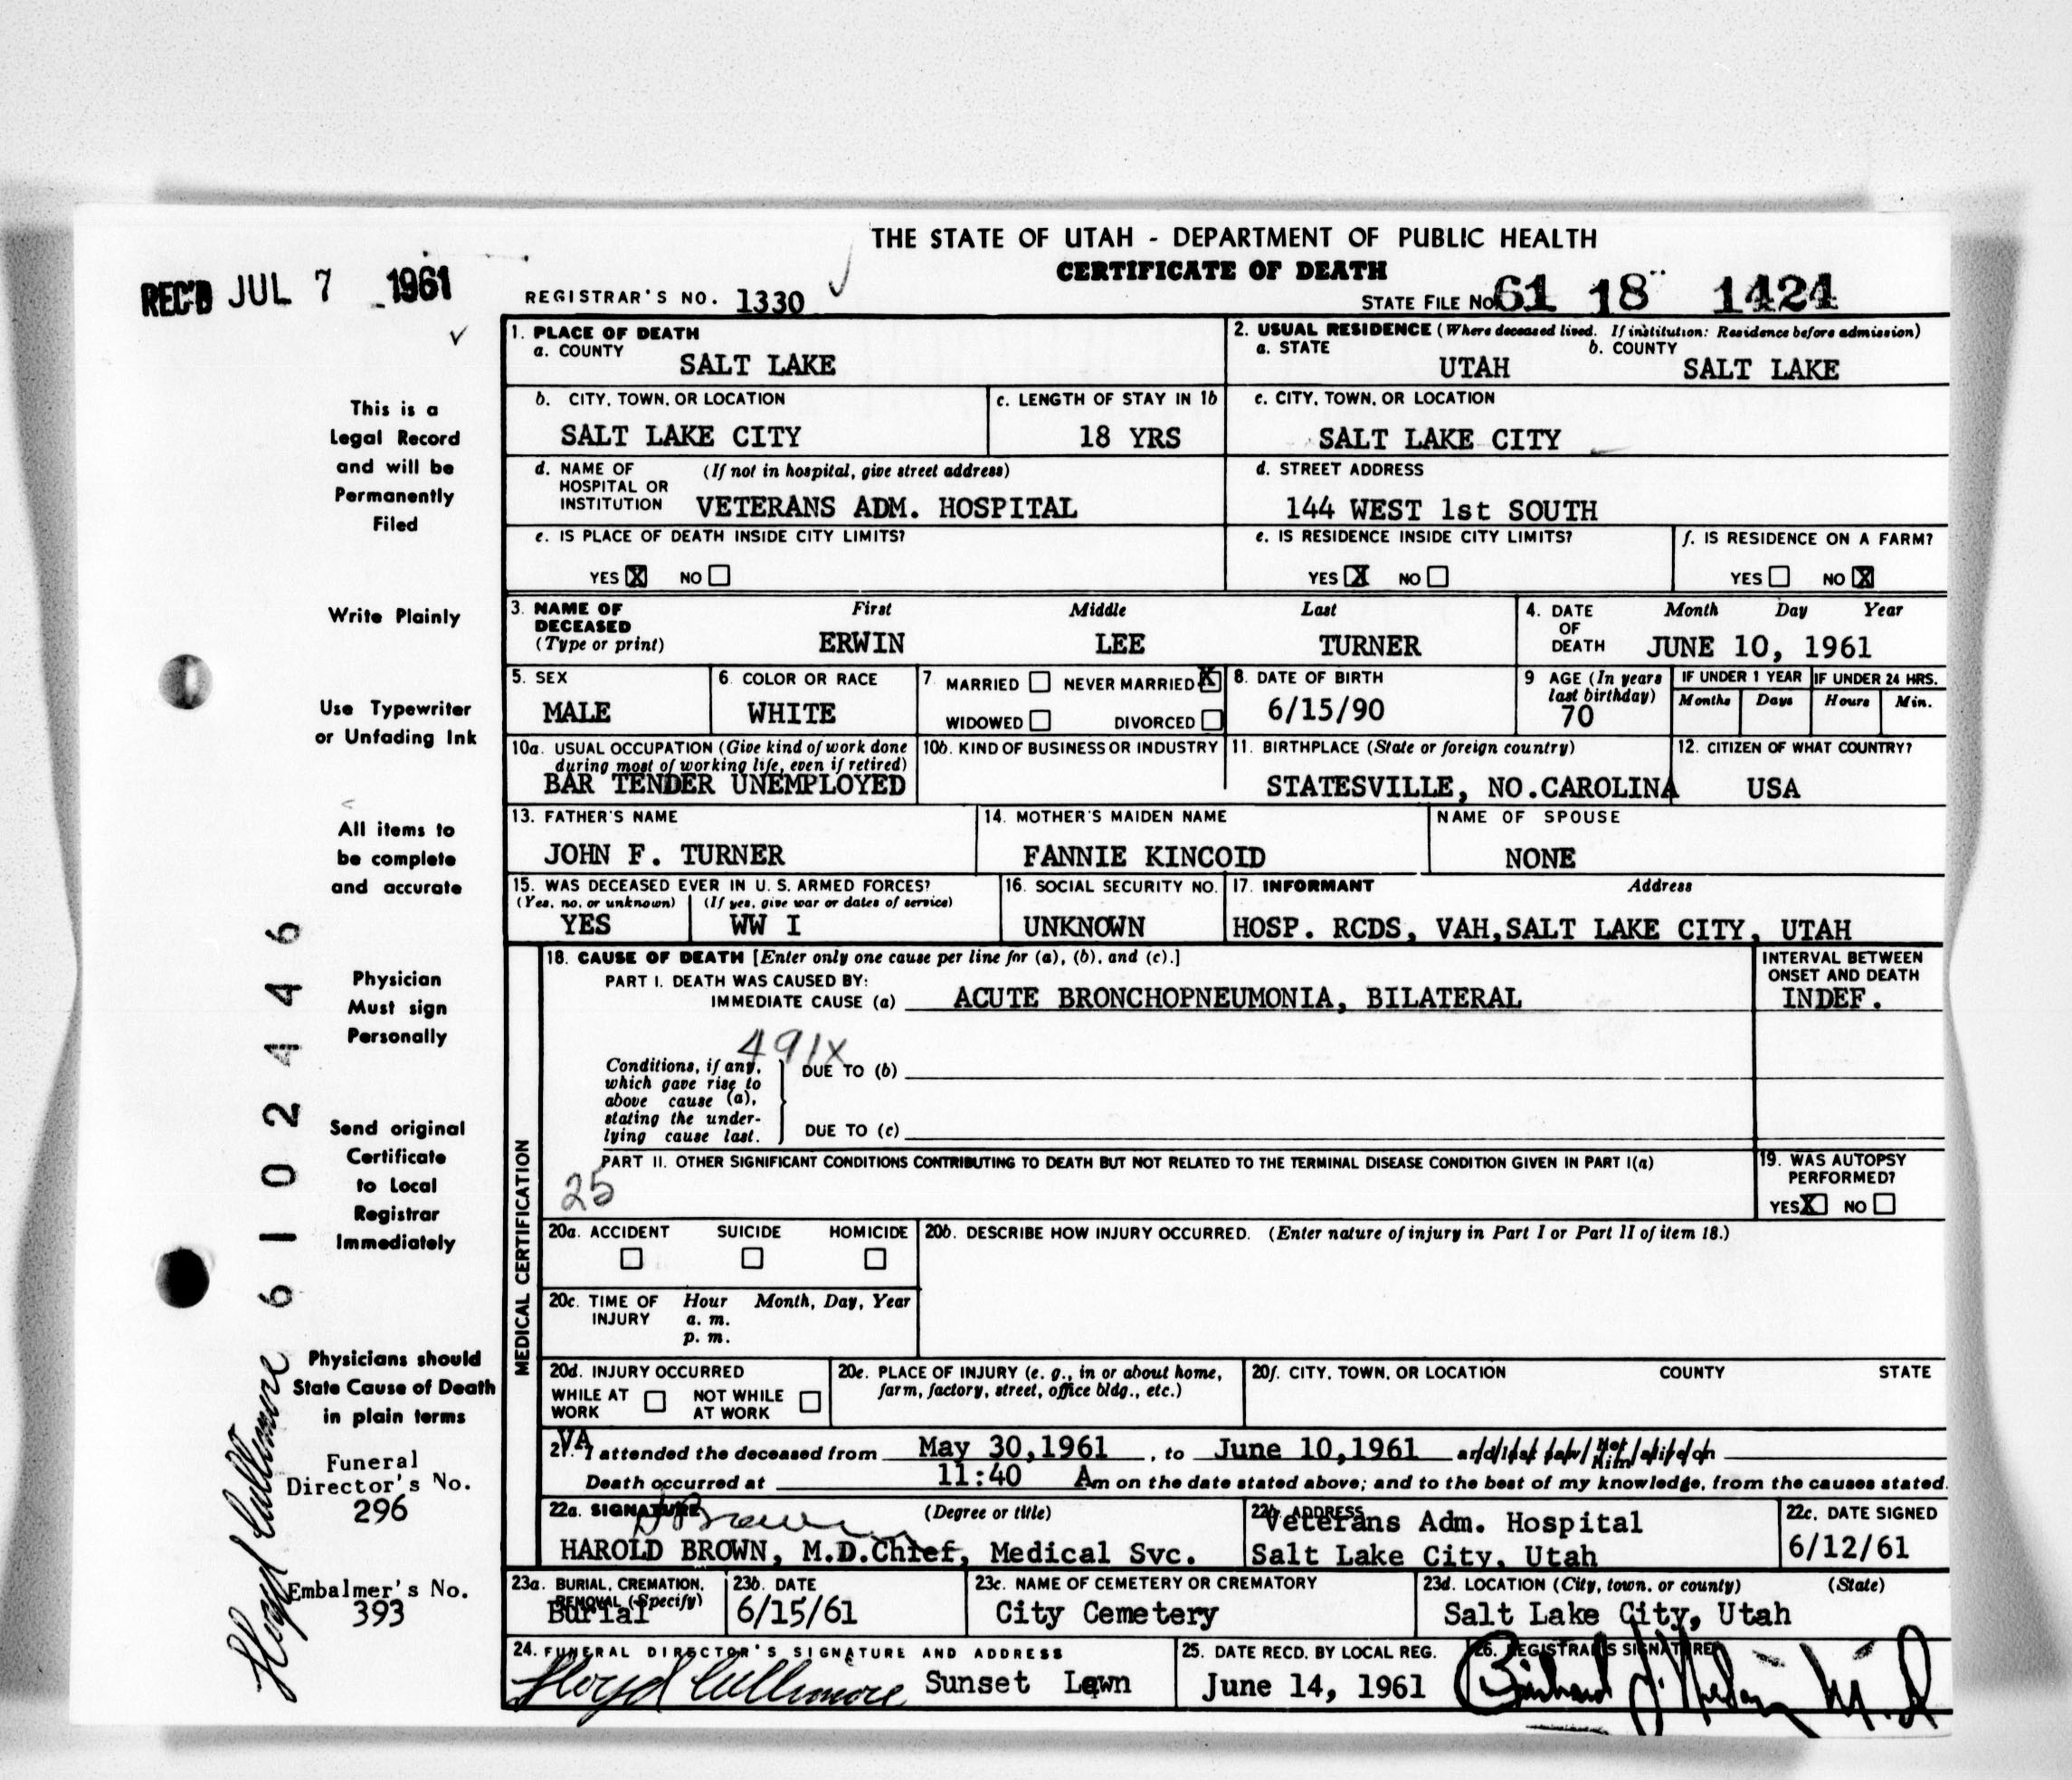 THE STATE OF UTAH - DEPARTMENT OF PUBLIC HEALTH
CERTIFICATE OF DEATH
REC'D JUL 7 1961
REGISTRAR'S NO. 1330
STATE FILE NO. 61 18 1424
1. PLACE OF DEATH
a. COUNTY SALT LAKE
2. USUAL RESIDENCE (Where deceased lived. If institution: Residence before admission)
a. STATE UTAH b. COUNTY SALT LAKE
b. CITY, TOWN, OR LOCATION SALT LAKE CITY
c. LENGTH OF STAY IN 1b 18 YRS
c. CITY, TOWN, OR LOCATION SALT LAKE CITY
d. NAME OF HOSPITAL OR INSTITUTION (If not in hospital, give street address) VETERANS ADM. HOSPITAL
d. STREET ADDRESS 144 WEST 1st SOUTH
e. IS PLACE OF DEATH INSIDE CITY LIMITS?
YES X NO
e. IS RESIDENCE INSIDE CITY LIMITS?
YES X NO
f. IS RESIDENCE ON A FARM?
YES NO X
3. NAME OF DECEASED (Type or print)
First Middle Last
ERWIN LEE TURNER
4. DATE OF DEATH Month Day Year
JUNE 10, 1961
5. SEX MALE
6. COLOR OR RACE WHITE
7. MARRIED NEVER MARRIED X
WIDOWED DIVORCED
8. DATE OF BIRTH 6/15/90
9 AGE (In years last birthday) 70
IF UNDER 1 YEAR Months Days
IF UNDER 24 HRS. Hours Min.
10a. USUAL OCCUPATION (Give kind of work done during most of working life, even if retired)
BAR TENDER UNEMPLOYED
10b. KIND OF BUSINESS OR INDUSTRY
11. BIRTHPLACE (State or foreign country)
STATESVILLE, NO.CAROLINA
12. CITIZEN OF WHAT COUNTRY?
USA
13. FATHER'S NAME
JOHN F. TURNER
14. MOTHER'S MAIDEN NAME
FANNIE KINCOID
NAME OF SPOUSE
NONE
15. WAS DECEASED EVER IN U. S. ARMED FORCES?
(Yes, no, or unknown) (If yes, give war or dates of service)
YES WW I
16. SOCIAL SECURITY NO.
UNKNOWN
17. INFORMANT Address
HOSP. RCDS, VAH,SALT LAKE CITY, UTAH
MEDICAL CERTIFICATION
18. CAUSE OF DEATH [Enter only one cause per line for (a), (b), and (c).]
PART I. DEATH WAS CAUSED BY:
IMMEDIATE CAUSE (a) ACUTE BRONCHOPNEUMONIA, BILATERAL
INTERVAL BETWEEN ONSET AND DEATH
INDEF.
491X
Conditions, if any, which gave rise to above cause (a), stating the underlying cause last.
DUE TO (b)
DUE TO (c)
PART II. OTHER SIGNIFICANT CONDITIONS CONTRIBUTING TO DEATH BUT NOT RELATED TO THE TERMINAL DISEASE CONDITION GIVEN IN PART I(a)
25
19. WAS AUTOPSY PERFORMED?
YES X NO
20a. ACCIDENT SUICIDE HOMICIDE
20b. DESCRIBE HOW INJURY OCCURRED. (Enter nature of injury in Part I or Part II of item 18.)
20c. TIME OF INJURY Hour Month, Day, Year
a. m.
p. m.
20d. INJURY OCCURRED
WHILE AT WORK NOT WHILE AT WORK
20e. PLACE OF INJURY (e. g., in or about home, farm, factory, street, office bldg., etc.)
20f. CITY, TOWN, OR LOCATION COUNTY STATE
21. VA I attended the deceased from May 30,1961, to June 10,1961 and last saw her him alive on
Death occurred at 11:40 Am on the date stated above; and to the best of my knowledge, from the causes stated.
22a. SIGNATURE (Degree or title)
H Brown
HAROLD BROWN, M.D.Chief, Medical Svc.
22b. ADDRESS
Veterans Adm. Hospital
Salt Lake City, Utah
22c. DATE SIGNED
6/12/61
23a. BURIAL, CREMATION, REMOVAL (Specify)
Burial
23b. DATE
6/15/61
23c. NAME OF CEMETERY OR CREMATORY
City Cemetery
23d. LOCATION (City, town, or county) (State)
Salt Lake City, Utah
24. FUNERAL DIRECTOR'S SIGNATURE AND ADDRESS
Floyd Cullimore Sunset Lawn
25. DATE RECD. BY LOCAL REG.
June 14, 1961
26. REGISTRAR'S SIGNATURE
M.D
This is a
Legal Record
and will be
Permanently
Filed
Write Plainly
Use Typewriter
or Unfading Ink
All items to
be complete
and accurate
Physician
Must sign
Personally
Send original
Certificate
to Local
Registrar
Immediately
Physicians should
State Cause of Death
in plain terms
Funeral
Director's No.
296
Embalmer's No.
393
6102446
Floyd Cullimore